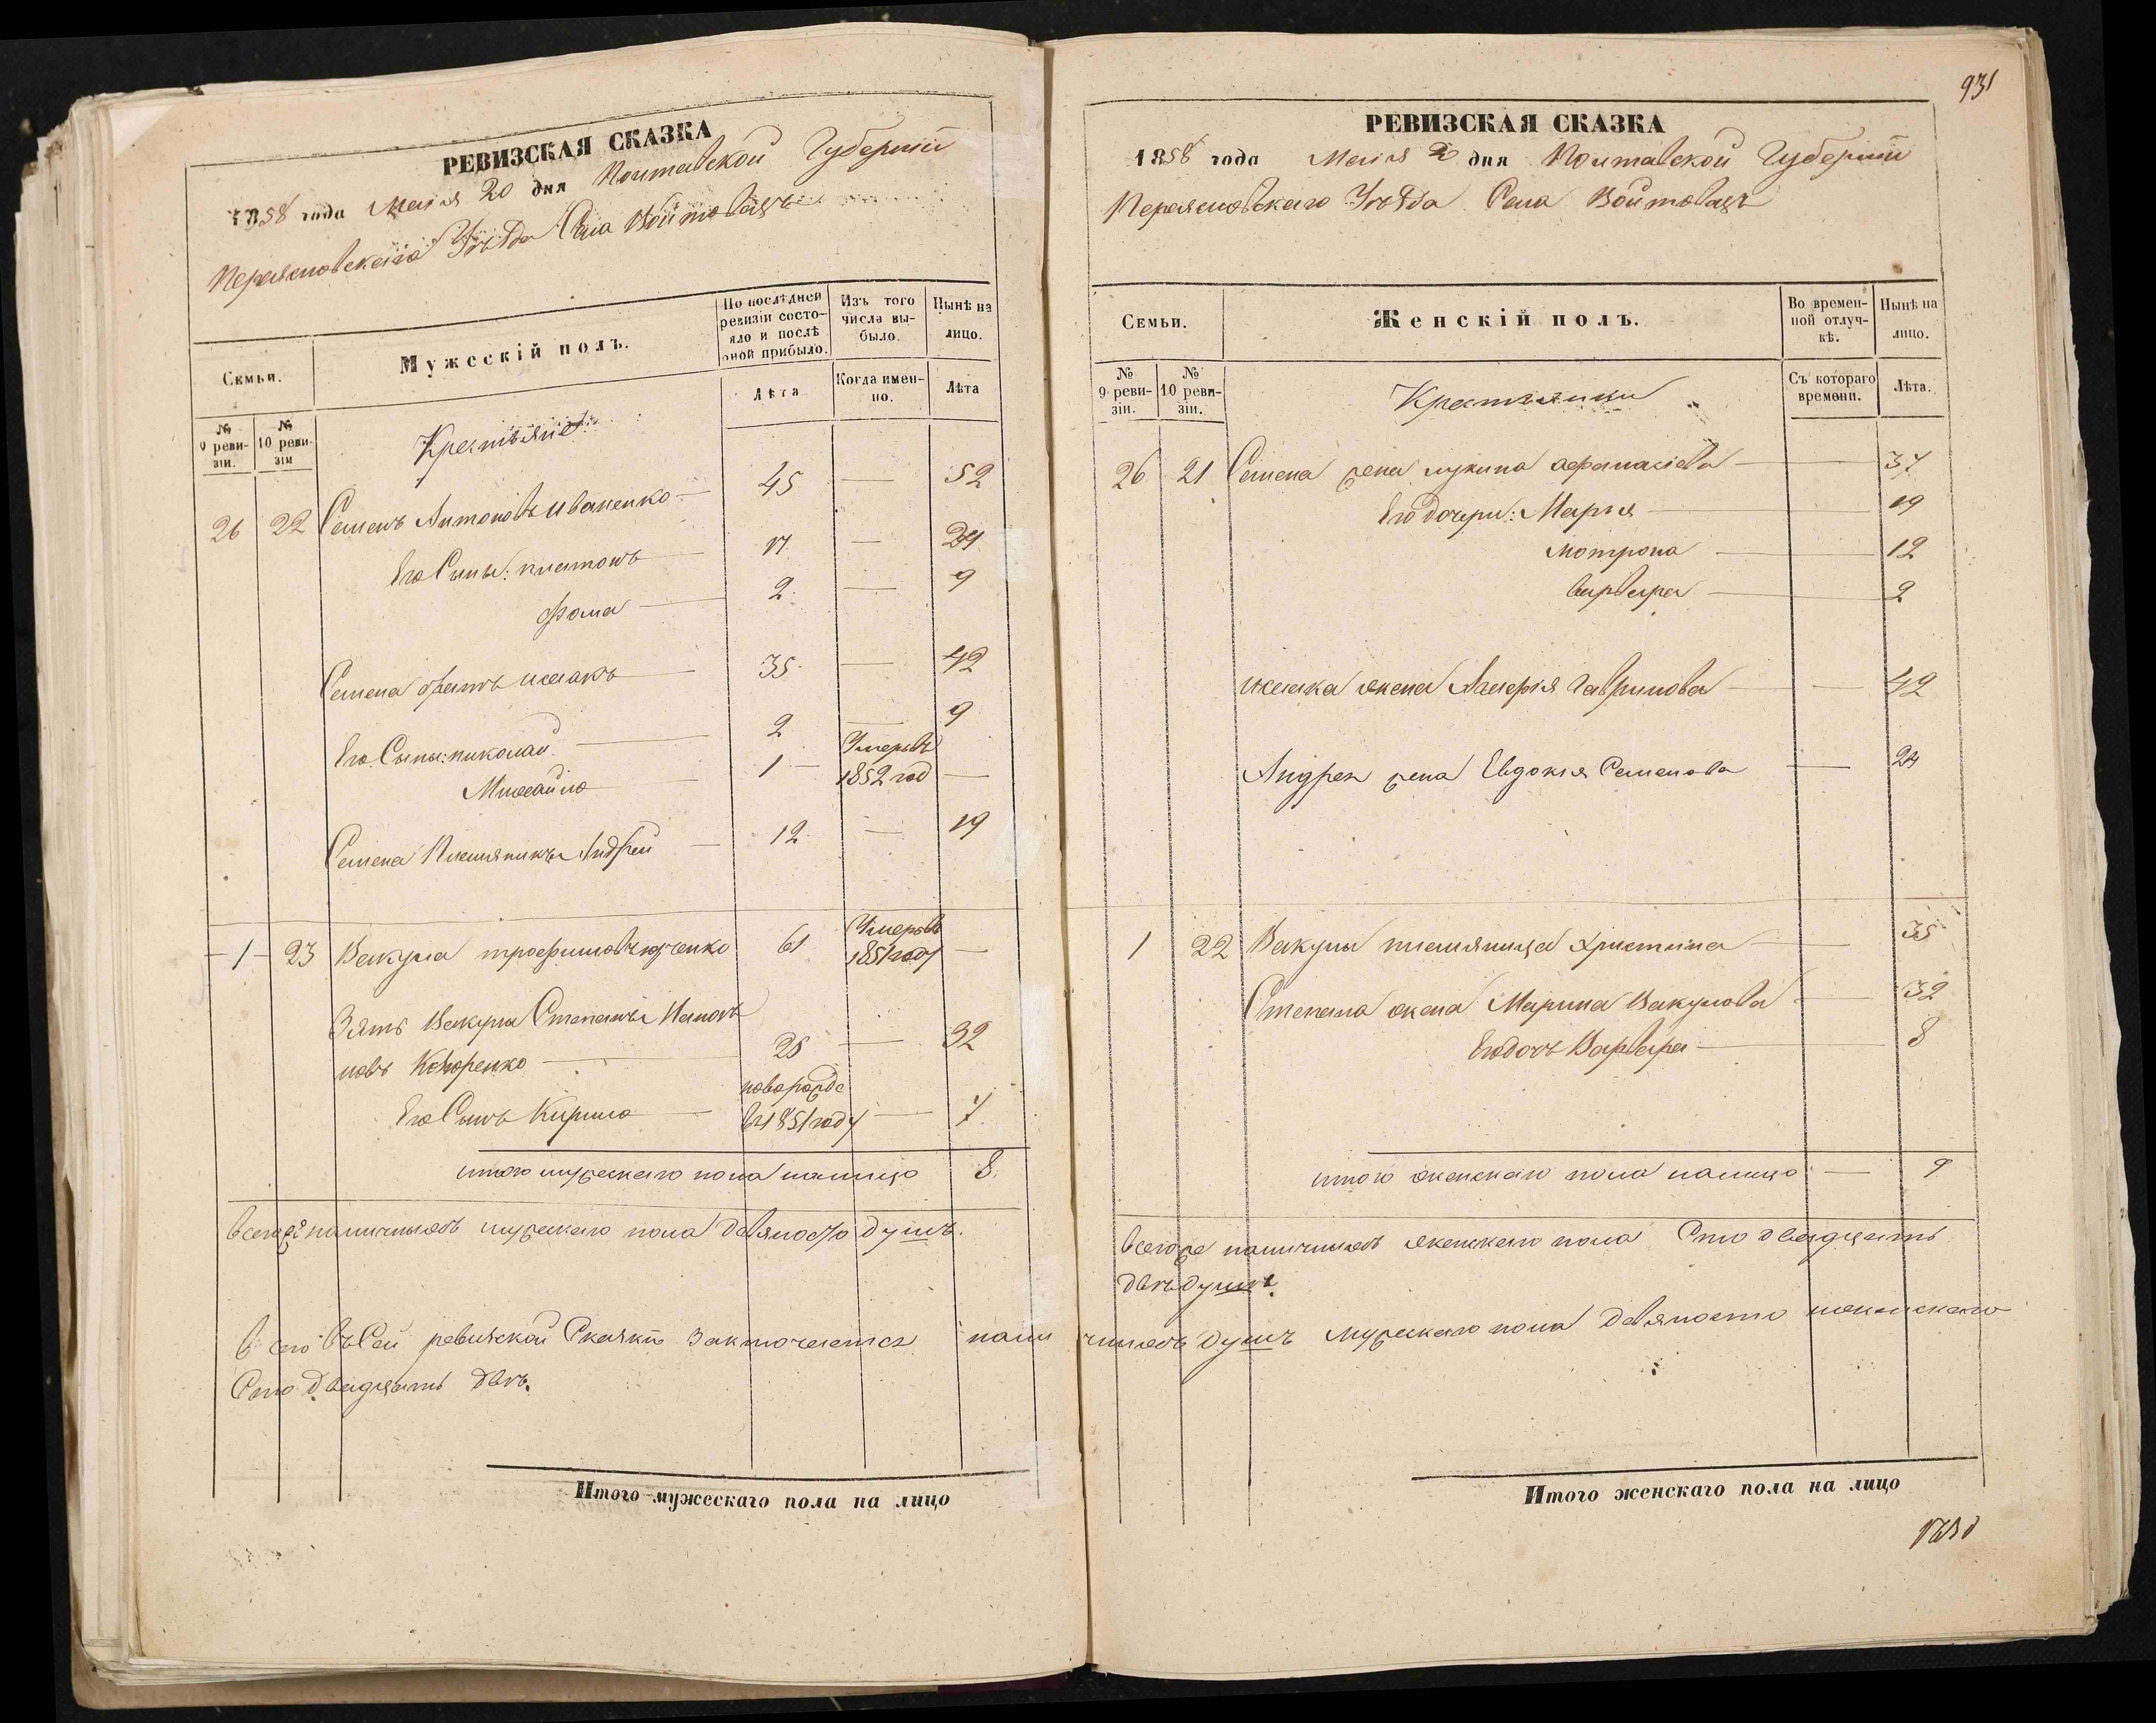 РЕВИЗСКАЯ СКАЗКА
1858 года Маія 20 дня Полтавской Губерніи
Переясловскаго Уѣзда Села Войтовецъ
Семьи.
Мужескій полъ.
По послѣдней ревизіи состояло и послѣ оной прибыло.
Изъ того числа выбыло.
Нынѣ на лицо.
№ 9 ревизіи.
№ 10 ревизіи
Крестьяне
Лѣта
Когда именно.
Лѣта
26 22 Семенъ Антоновъ Иваненко — 45 — 52
Его Сыны: платонъ — 17 — 24
Фома — 2 — 9
Семена братъ исаакъ — 35 — 42
Его Сыны: николай — 2 — 9
Михайло — 1 — Умеръ въ 1852 год —
Семена Племяникъ Андрей — 12 — 19
1 23 Вакула трофимовъ 61 Умеръ въ 1851 году —
Зять Вакулы Степанъ
новъ 25 — 32
Его Сынъ Кирило — новорожде въ 1851 году — 7
итого мужескаго пола налицо 8.
всего же наличныхъ мужескаго пола девяносто душъ.
въСей ревизской Сказкѣ Заключается нали
Сто двадцать двѣ.
Итого мужескаго пола на лицо
931
РЕВИЗСКАЯ СКАЗКА
1858 года Маія 2 дня Полтавской Губерніи
Переясловскаго Уѣзда Села Войтовецъ
Семьи.
Женскій полъ.
Во временной отлучкѣ.
Нынѣ на лицо.
№ 9 ревизіи.
№ 10 ревизіи.
Крестьянки
Съ котораго времени.
Лѣта.
26 21 Семена жена лукина афанасіева — 37
Его дочери: Марія — 19
мотрона — 12
варвара — 2
исаака жена гаврилова — 42
Андрея жена Евдокія Семенова — 24
1 22 Вакулы племяница христина — 35
Степана жена Марина Вакулова — 32
Его дочь Варвара — 8
итого женскаго пола налицо — 9
всего же наличныхъ женскаго пола Сто двадцать
двѣ души.
чныхъ душъ мужескаго пола девяносто женскаго
Итого женскаго пола на лицо